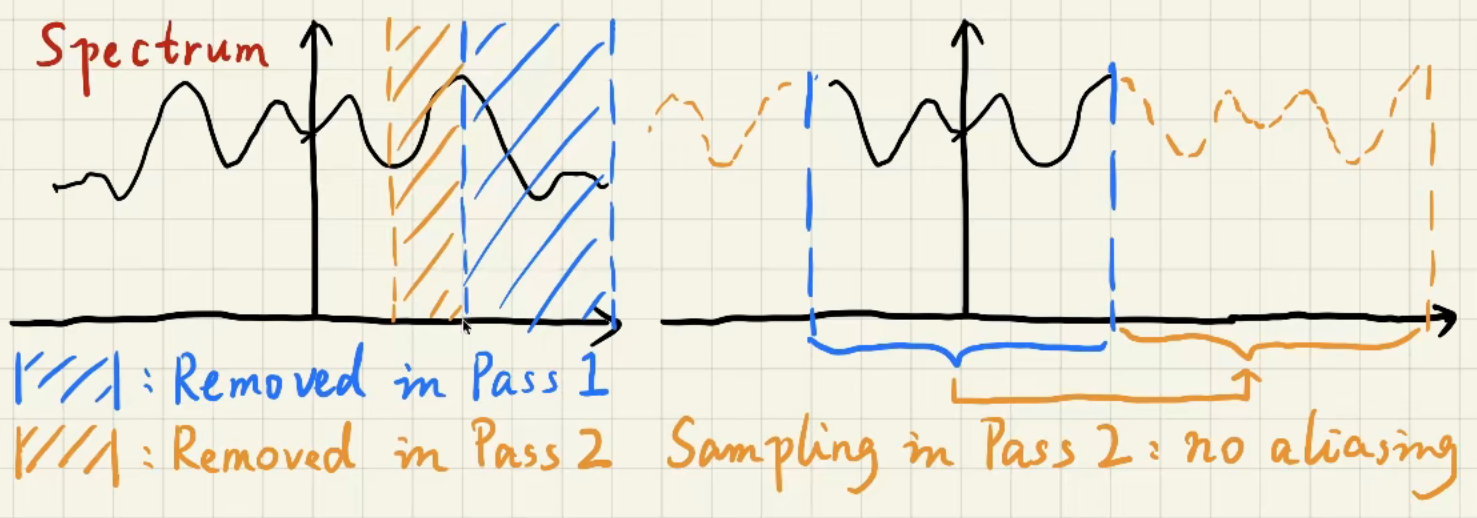 Spectrum
: Removed in Pass 1
: Removed in Pass 2
Sampling in Pass 2: no aliasing